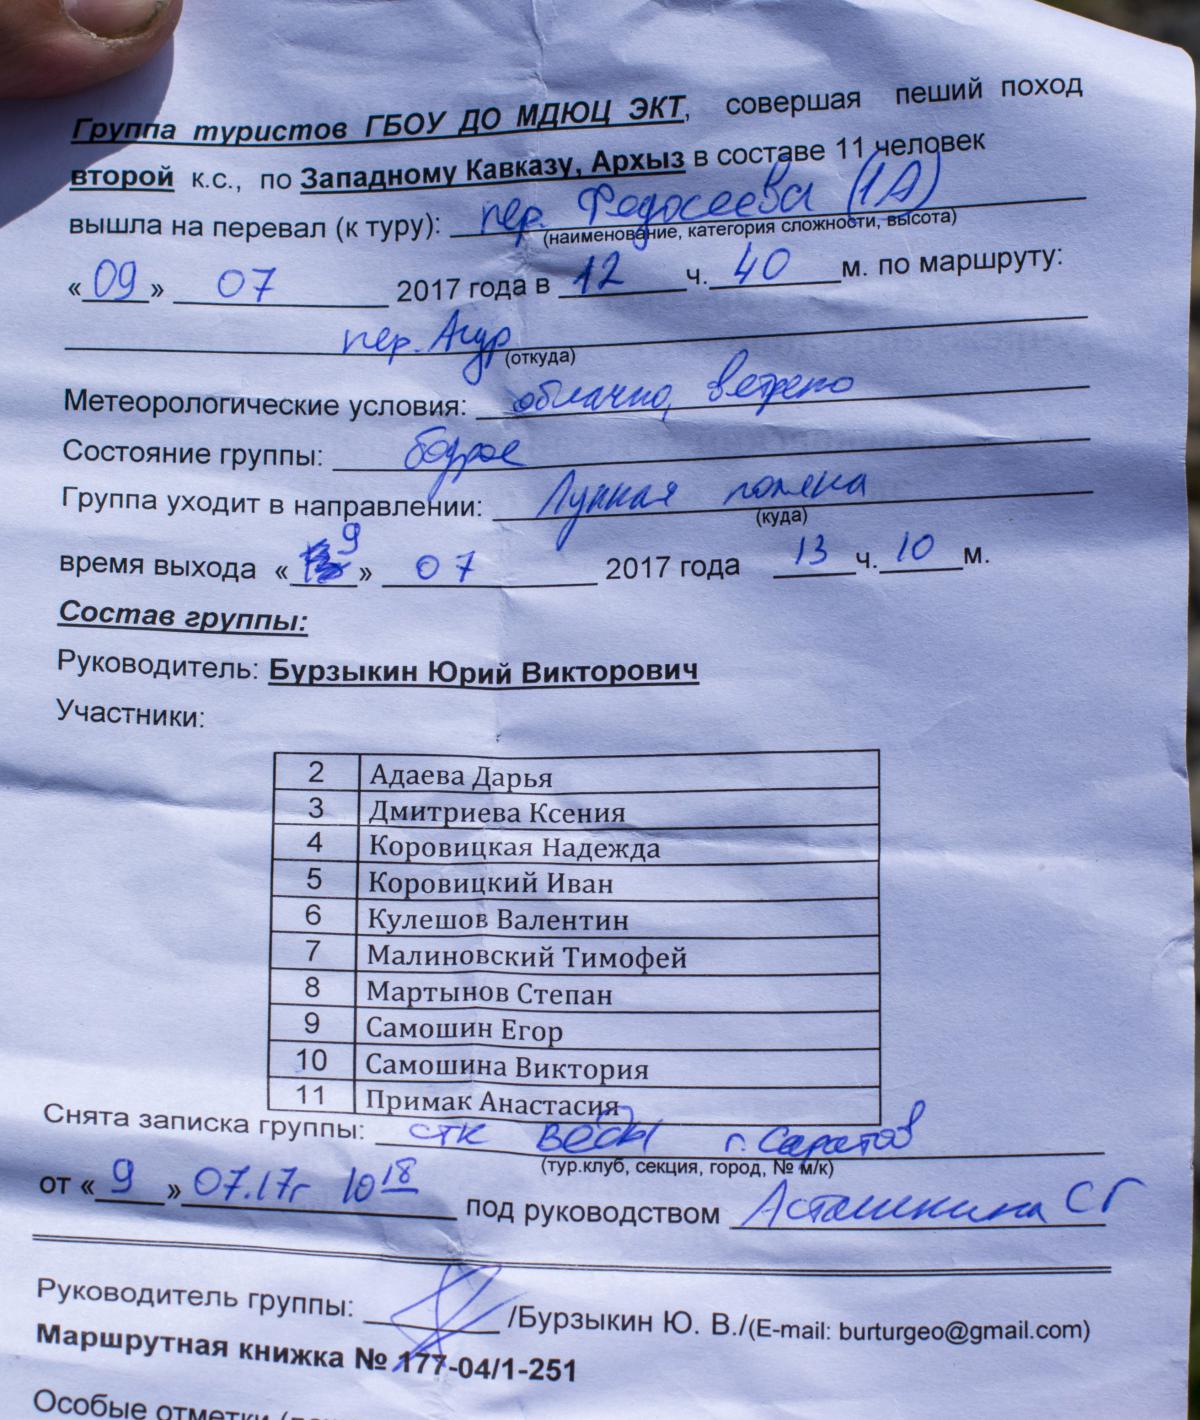 Группа туристов ГБОУ ДО МДЮЦ ЭКТ, совершая пеший поход
второй к.с., по Западному Кавказу, Архыз в составе 11 человек
вышла на перевал (к туру): пер. Федосеева (1А)
(наименование, категория сложности, высота)
«09» 07 2017 года в 12 ч. 40 м. по маршруту:
пер. Агур
(откуда)
Метеорологические условия: облачно, ветрено
Состояние группы: бодрое
Группа уходит в направлении: Лунная поляна
(куда)
время выхода «9» 07 2017 года 13 ч. 10 м.
Состав группы:
Руководитель: Бурзыкин Юрий Викторович
Участники:
2 Адаева Дарья
3 Дмитриева Ксения
4 Коровицкая Надежда
5 Коровицкий Иван
6 Кулешов Валентин
7 Малиновский Тимофей
8 Мартынов Степан
9 Самошин Егор
10 Самошина Виктория
11 Примак Анастасия
Снята записка группы: СТК Весы г. Саратов
(тур.клуб, секция, город, № м/к)
от «9» 07.17г 10 18 под руководством Асташкина СГ
Руководитель группы: /Бурзыкин Ю. В./(E-mail: burturgeo@gmail.com)
Маршрутная книжка № 177-04/1-251
Особые отметки